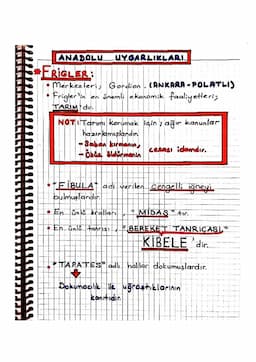 ANADOLU UYGARLIKLARI
*FRİGLER:
• Merkezleri; Gordion. (ANKARA-POLATLI)
• Frigler'in en önemli ekonomik faaliyetleri;
TARIM'dır.
NOT: Tarımı korumak için; ağır kanunlar
hazırlamışlardır.
- Saban kırmanın,
- Öküz öldürmenin cezası idamdır.
• "FİBULA" adı verilen çengelli iğneyi
bulmuşlardır.
• En ünlü kralları, "MİDAS" tır.
• En ünlü tanrısı, "BEREKET TANRIÇASI"
KİBELE'dir.
• "TAPATES" adlı halılar dokumuşlardır.
Dokumacılık ile uğraştıklarının
kanıtıdır.